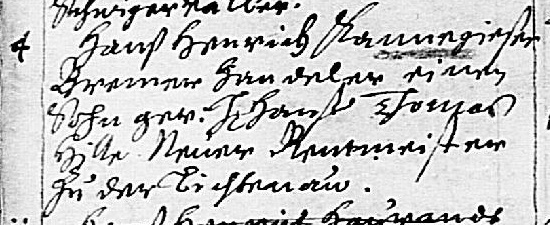 Schwigervatter.
4 Hanß Henrich Kannegießer
Bremer handeler einen
Sohn gev. H Hanß Tomas
Hille Neuer Rentmeister
zu der Lichtenaw.
Henrich